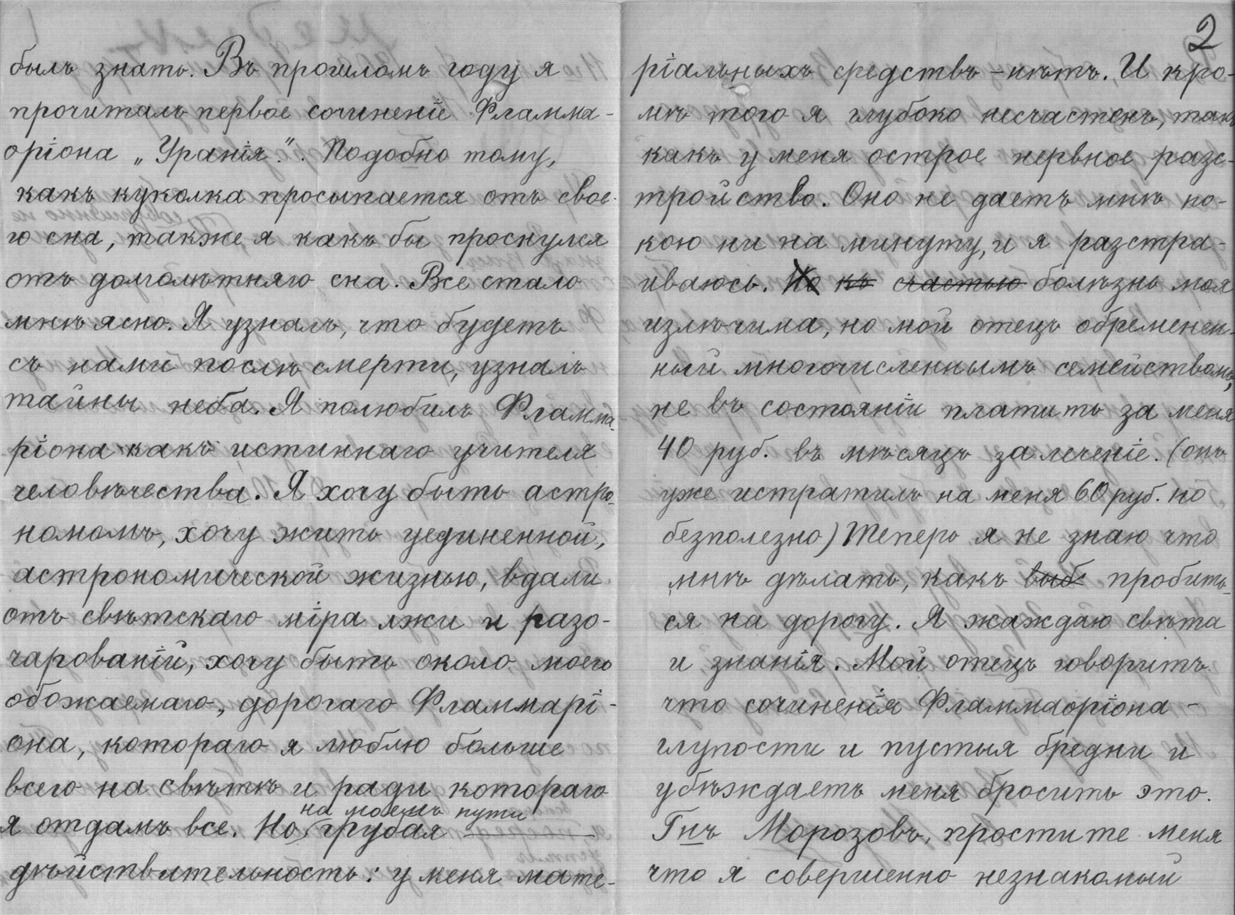 былъ знать. Въ прошломъ году я
прочиталъ первое сочиненіе Фламма-
оріона „Уранія.". Подобно тому,
какъ куколка просыпается отъ свое-
го сна, также я какъ бы проснулся
отъ долголѣтняго сна. Все стало
мнѣ ясно. Я узналъ, что будетъ
съ нами послѣ смерти, узналъ
тайны неба. Я полюбилъ Фламма-
ріона какъ истиннаго учителя
человѣчества. Я хочу быть астро-
номомъ, хочу жить уединенной,
астрономической жизнью, вдали
отъ свѣтскаго міра лжи и разо-
чарованій, хочу быть около моего
обожаемаго, дорогаго Фламмарі-
она, котораго я люблю больше
всего на свѣтѣ и ради котораго
на моемъ пути
я отдамъ все. Но, грубая
дѣйствительность: у меня мате-
2
ріальныхъ средствъ – нѣтъ. И кро-
мѣ того я глубоко несчастенъ, такъ
какъ у меня острое нервное разс-
тройство. Оно не даетъ мнѣ по-
кою ни на минуту, и я разстра-
иваюсь. Но къ счастью болѣзнь моя
излѣчима, но мой отецъ обременен-
ный многочисленнымъ семействомъ,
не въ состояніи платить за меня
40 руб. въ мѣсяцъ за леченіе. (онъ
уже истратилъ на меня 60 руб. но
безполезно) Теперь я не знаю что
мнѣ дѣлать, какъ выб пробить-
ся на дорогу. Я жаждаю свѣта
и знанія. Мой отецъ говоритъ
что сочиненія Фламмаоріона –
глупости и пустыя бредни и
убѣждаетъ меня бросить это.
Гнъ Морозовъ, простите меня
что я совершенно незнакомый